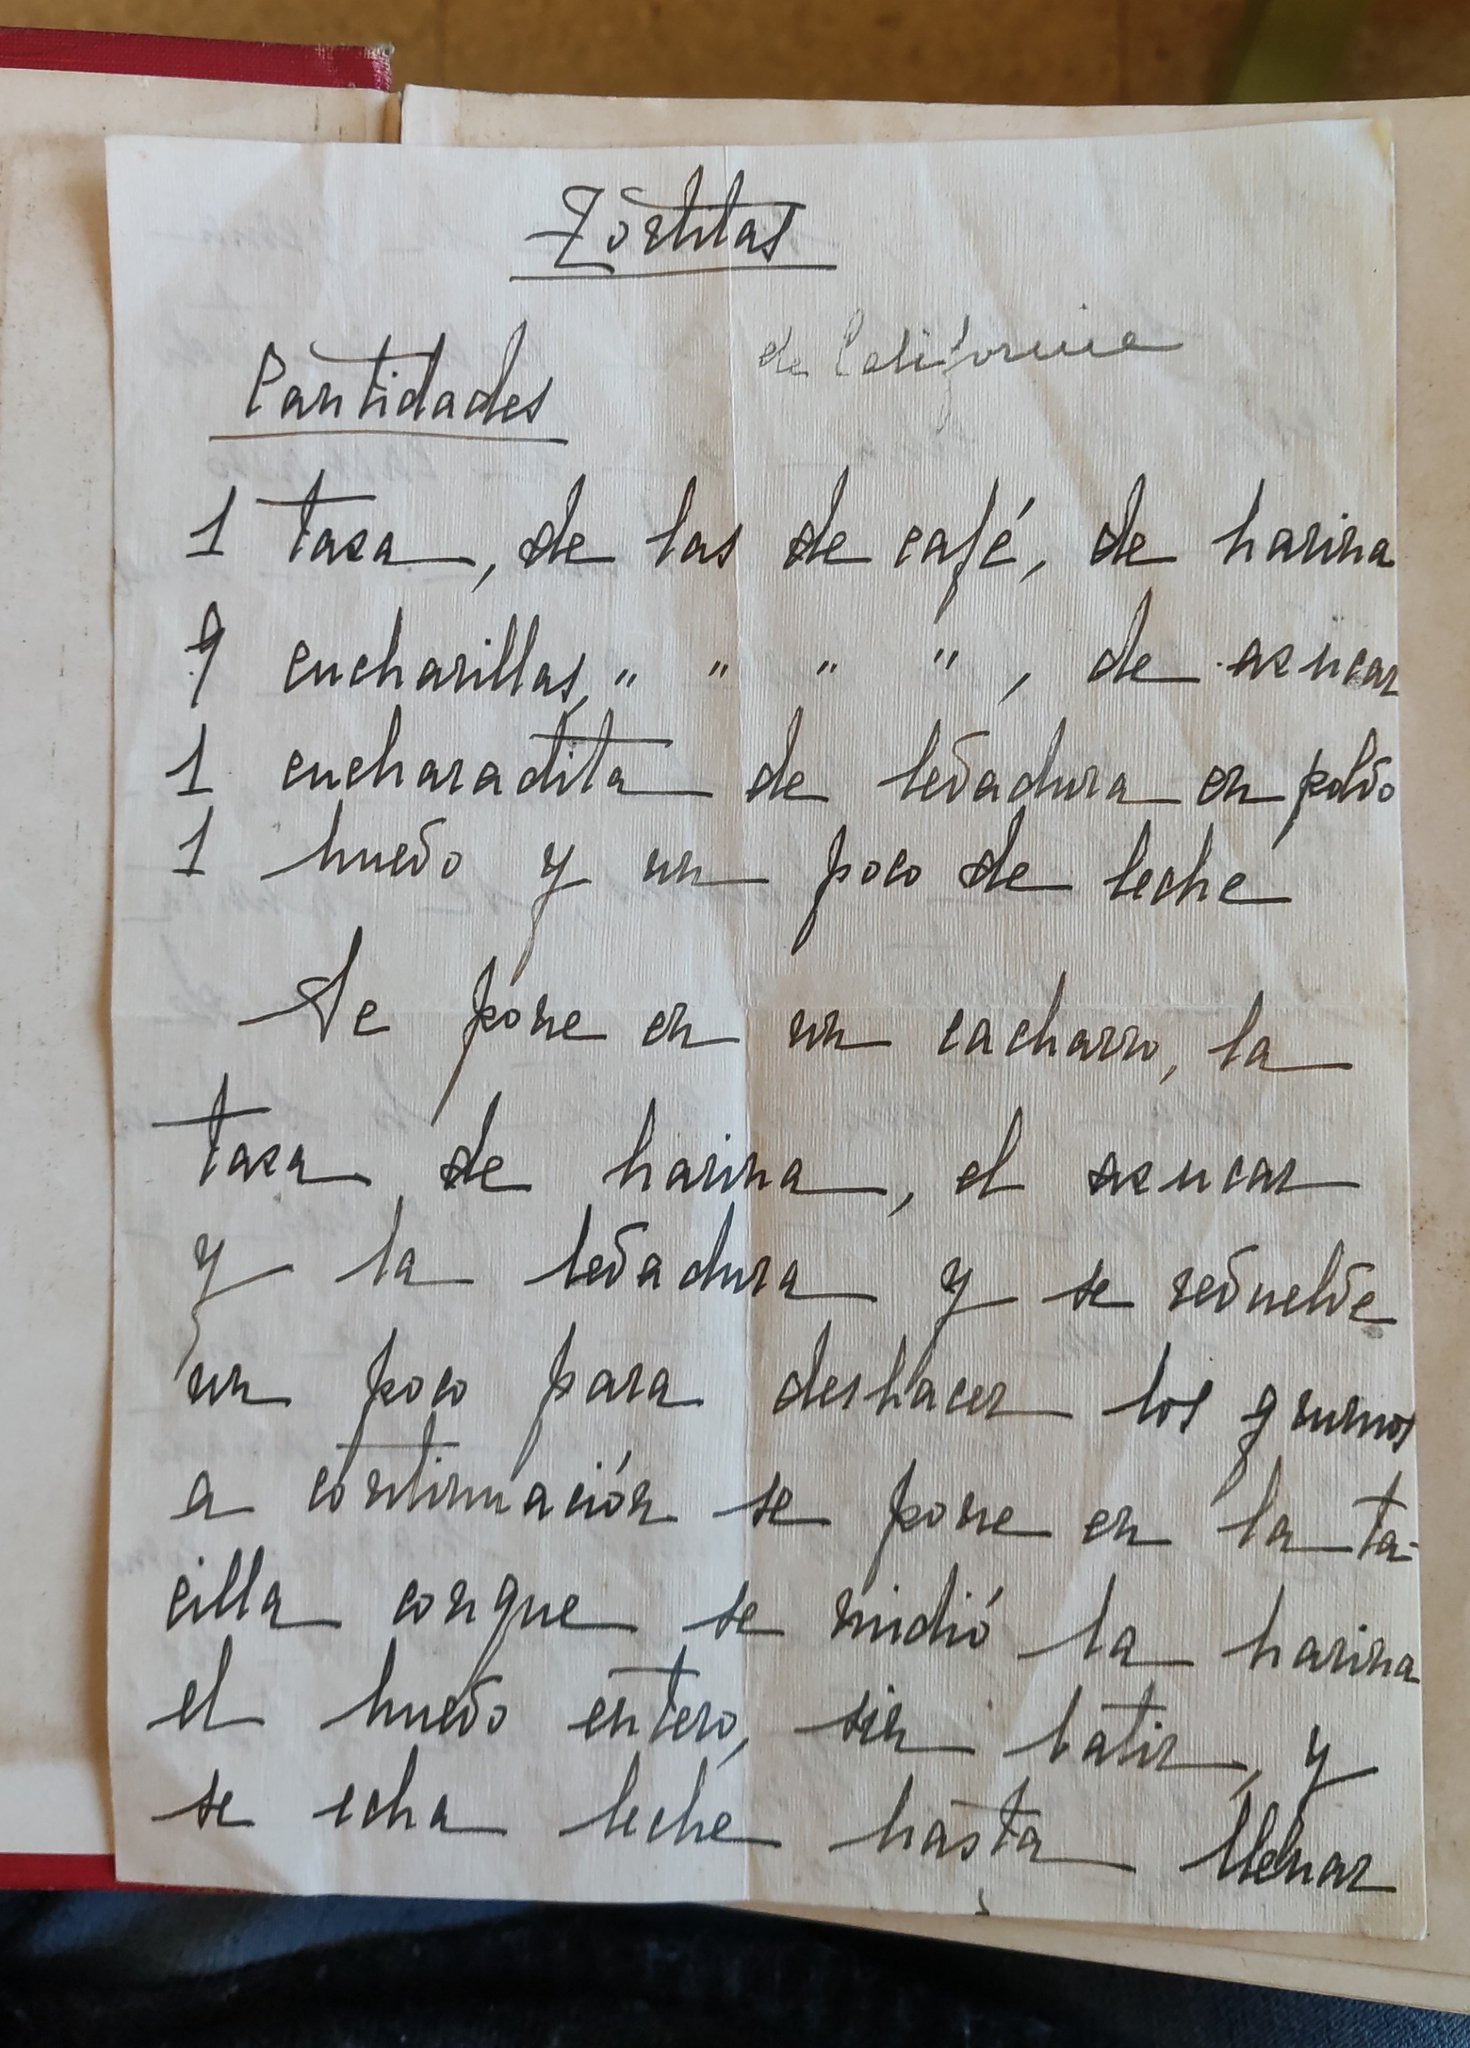 Tortitas
de California
Cantidades
1 taza, de las de café, de harina
9 cucharillas, " " " ", de azúcar
1 cucharadita de levadura en polvo
1 huevo y un poco de leche
Se pone en un cacharro, la
taza de harina, el azucar
y la levadura y se revuelve
un poco para deshacer los grumos
a continuación se pone en la ta-
cilla conque se midió la harina
el huevo entero, sin batir, y
se echa leche hasta llenar